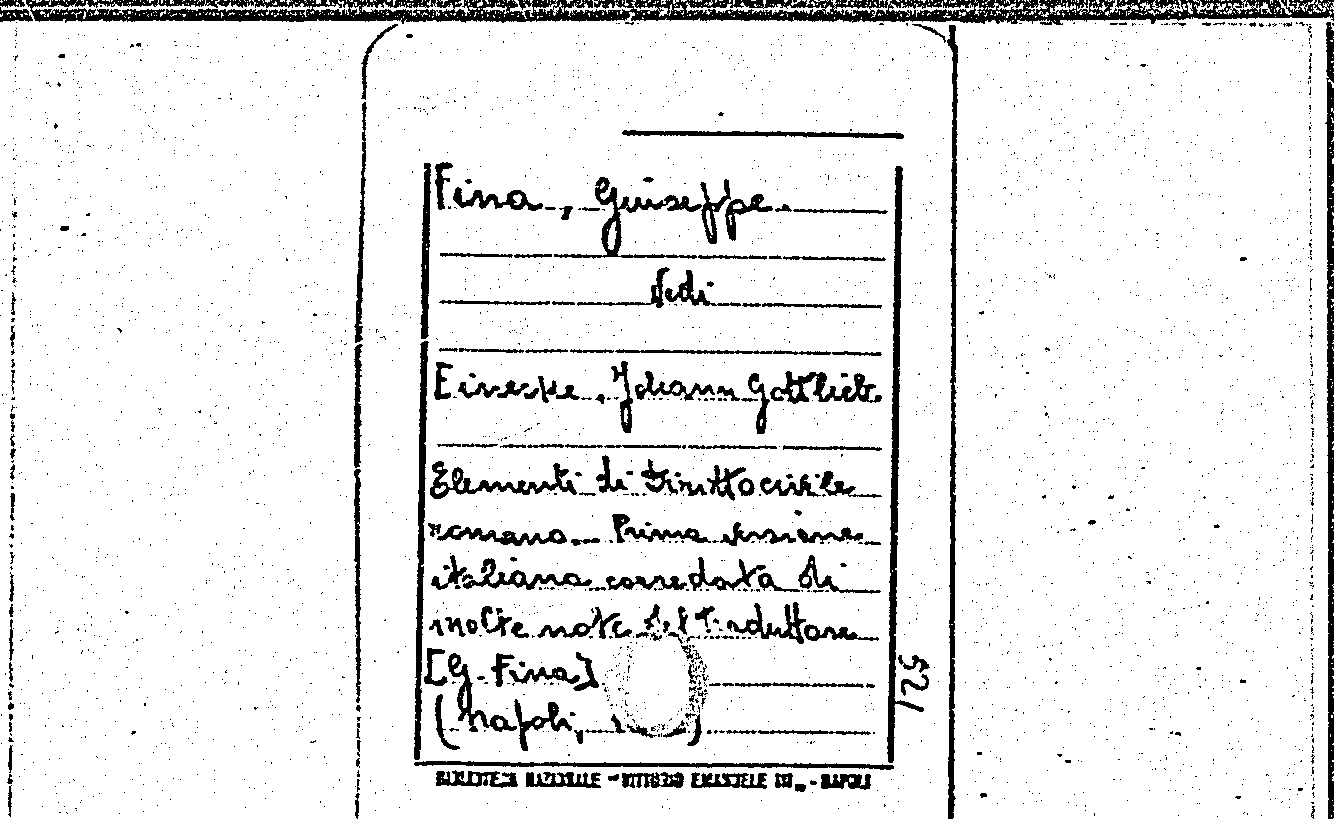 Fina, Giuseppe.
Vedi
Eineske, Johann Gottlieb.
Elementi di diritto civile
romano. Prima versione
italiana corredata di
molte note del traduttore
[G. Fina]
(Napoli, )
521
BIBLIOTECA NAZIONALE "VITTORIO EMANUELE III" - NAPOLI